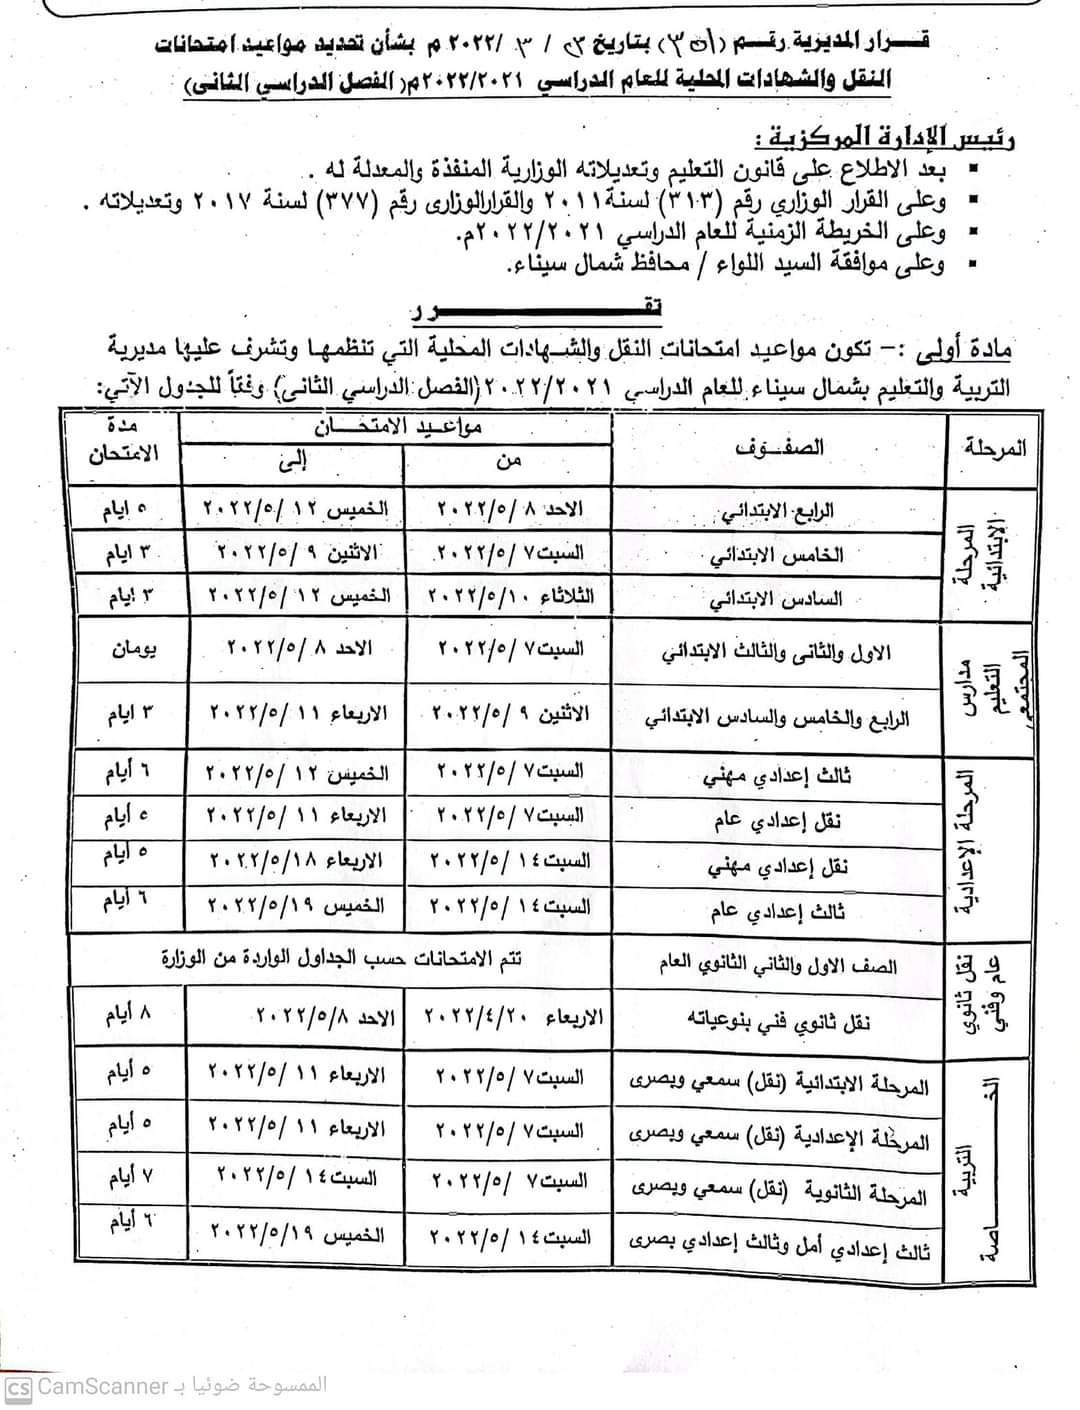 قـــرار المديرية رقـم (٣٥١) بتاريخ ٢٣ / ٣ /٢٠٢٢ م بشأن تحديد مواعيد امتحانات
النقل والشهادات المحلية للعام الدراسي ٢٠٢٢/٢٠٢١م( الفصل الدراسي الثانى)
رئيس الإدارة المركزية :
▪ بعد الاطلاع على قانون التعليم وتعديلاته الوزارية المنفذة والمعدلة له .
▪ وعلى القرار الوزاري رقم (٣١٣) لسنة٢٠١١ والقرارالوزارى رقم (٣٧٧) لسنة ٢٠١٧ وتعديلاته .
▪ وعلى الخريطة الزمنية للعام الدراسي ٢٠٢٢/٢٠٢١م.
▪ وعلى موافقة السيد اللواء / محافظ شمال سيناء.
تقــــــــرر
مادة أولى :– تكون مواعيد امتحانات النقل والشهادات المحلية التي تنظمها وتشرف عليها مديرية
التربية والتعليم بشمال سيناء للعام الدراسي ٢٠٢٢/٢٠٢١(الفصل الدراسي الثانى) وفقاً للجدول الآتي:
المرحلة الصفــوف مواعـيد الامتحــان مدة الامتحان
من إلى
المرحلة الابتدائية
الرابع الابتدائي الاحد ٢٠٢٢/٥/٨ الخميس ٢٠٢٢/٥/ ١٢ ٥ ايام
الخامس الابتدائي السبت٢٠٢٢/٥/٧ الاثنين ٢٠٢٢/٥/ ٩ ٣ ايام
السادس الابتدائي الثلاثاء ٢٠٢٢/٥/١٠ الخميس ٢٠٢٢/٥/ ١٢ ٣ ايام
مدارس التعليم المجتمعي
الاول والثانى والثالث الابتدائي السبت٢٠٢٢/٥/٧ الاحد ٢٠٢٢/٥/ ٨ يومان
الرابع والخامس والسادس الابتدائي الاثنين ٢٠٢٢/٥/ ٩ الاربعاء ٢٠٢٢/٥/ ١١ ٣ ايام
المرحلة الإعدادية
ثالث إعدادي مهني السبت٢٠٢٢/٥/٧ الخميس ٢٠٢٢/٥/ ١٢ ٦ أيام
نقل إعدادي عام السبت٢٠٢٢/٥/٧ الاربعاء ٢٠٢٢/٥/ ١١ ٥ أيام
نقل إعدادي مهني السبت٢٠٢٢/٥/ ١٤ الاربعاء ٢٠٢٢/٥/١٨ ٥ أيام
ثالث إعدادي عام السبت٢٠٢٢/٥/ ١٤ الخميس ٢٠٢٢/٥/١٩ ٦ أيام
نقل ثانوي عام وفني
الصف الاول والثاني الثانوي العام تتم الامتحانات حسب الجداول الواردة من الوزارة
نقل ثانوي فني بنوعياته الاربعاء ٢٠٢٢/٤/٢٠ الاحد ٢٠٢٢/٥/٨ ٨ أيام
التربية الخــــــاصة
المرحلة الابتدائية (نقل) سمعي وبصرى السبت٢٠٢٢/٥/٧ الاربعاء ٢٠٢٢/٥/ ١١ ٥ أيام
المرحلة الإعدادية (نقل) سمعي وبصرى السبت٢٠٢٢/٥/٧ الاربعاء ٢٠٢٢/٥/ ١١ ٥ أيام
المرحلة الثانوية (نقل) سمعي وبصرى السبت٢٠٢٢/٥/ ٧ السبت٢٠٢٢/٥/ ١٤ ٧ أيام
ثالث إعدادي أمل وثالث إعدادي بصرى السبت٢٠٢٢/٥/ ١٤ الخميس ٢٠٢٢/٥/١٩ ٦ أيام
CS CamScanner الممسوحة ضوئيا بـ